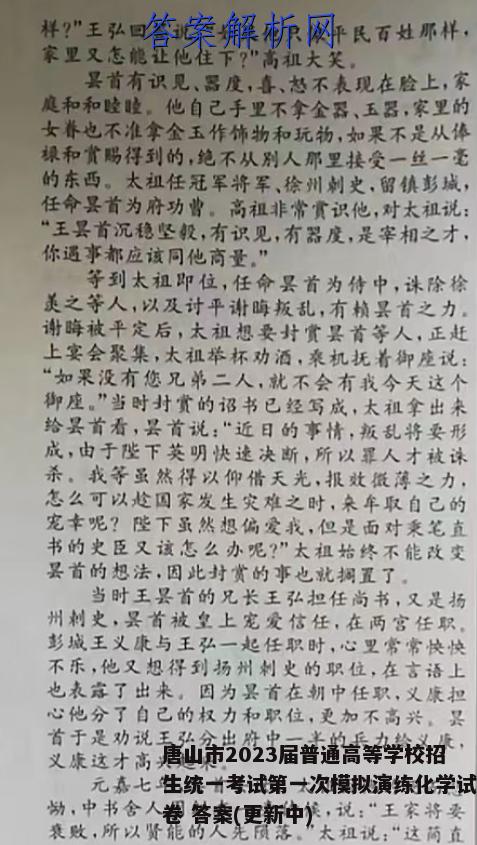 样？”王弘回 说 平民百姓那样，
答案解析网
家里又怎能让他住下？”高祖大笑。
昙首有识见、器度，喜、怒不表现在脸上，家
庭和和睦睦。他自己手里不拿金器、玉器，家里的
女眷也不准拿金玉作饰物和玩物，如果不是从俸
禄和赏赐得到的，绝不从别人那里接受一丝一毫
的东西。太祖任冠军将军、徐州刺史，留镇彭城，
任命昙首为府功曹。高祖非常赏识他，对太祖说：
“王昙首沉稳坚毅，有识见，有器度，是宰相之才，
你遇事都应该同他商量。”
等到太祖即位，任命昙首为侍中，诛除徐
羡之等人，以及讨平谢晦叛乱，有赖昙首之力。
谢晦被平定后，太祖想要封赏昙首等人，正赶
上宴会聚集，太祖举杯劝酒，乘机抚着御座说：
“如果没有您兄弟二人，就不会有我今天这个
御座。”当时封赏的诏书已经写成，太祖拿出来
给昙首看，昙首说：“近日的事情，叛乱将要形
成，由于陛下英明快速决断，所以罪人才被诛
杀。我等虽然得以仰借天光，报效微薄之力，
怎么可以趁国家发生灾难之时，来牟取自己的
宠幸呢？陛下虽然想偏爱我，但是面对秉笔直
书的史臣又该怎么办呢？”太祖始终不能改变
昙首的想法，因此封赏的事也就搁置了。
当时王昙首的兄长王弘担任尚书，又是扬
州刺史，昙首被皇上宠爱信任，在两宫任职。
彭城王义康与王弘一起任职时，心里常常怏怏
不乐，他又想得到扬州刺史的职位，在言语上
也表露了出来。因为昙首在朝中任职，义康担
心他分了自己的权力和职位，更加不高兴。昙
首于是劝说王弘分出府中一半的兵力给义康，
义康这才高兴
唐山市2023届普通高等学校招
生统一考试第一次模拟演练化学试
卷 答案(更新中)
元嘉七年
恸，中书舍人周 说：“王家将要
衰败，所以贤能的人先陨落。”太祖说：“这简直